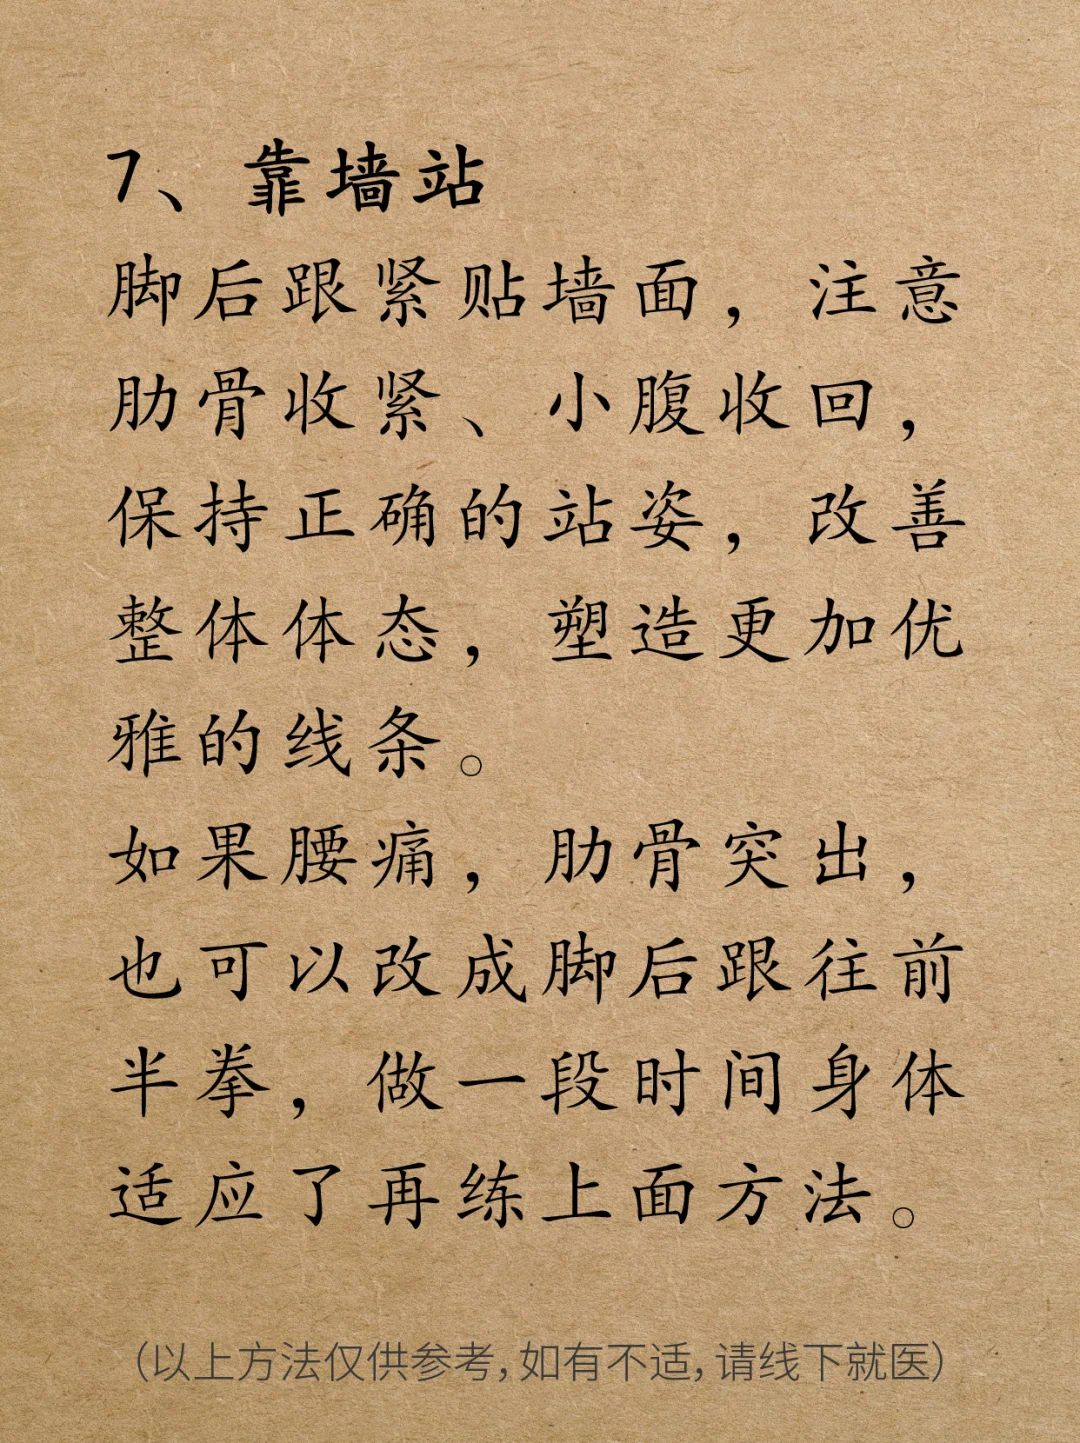 7、靠墙站
脚后跟紧贴墙面，注意
肋骨收紧、小腹收回，
保持正确的站姿，改善
整体体态，塑造更加优
雅的线条。
如果腰痛，肋骨突出，
也可以改成脚后跟往前
半拳，做一段时间身体
适应了再练上面方法。
（以上方法仅供参考，如有不适，请线下就医）